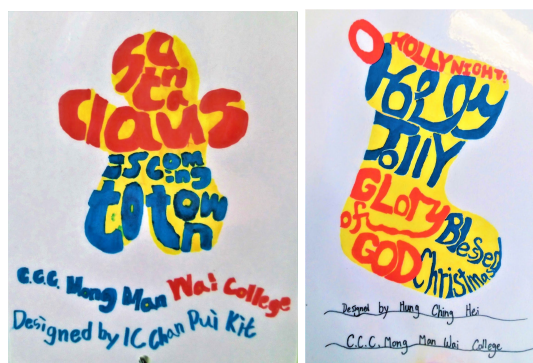 santa
claus
is coming
to town
C.C.C. Mong Man Wai College
Designed by 1C Chan Pui Kit
O HOLLY NIGHT!
Holly
Jolly
GLORY
of
GOD
Blessed
Christmas
Designed by Hung Ching Hei
C.C.C. Mong Man Wai College